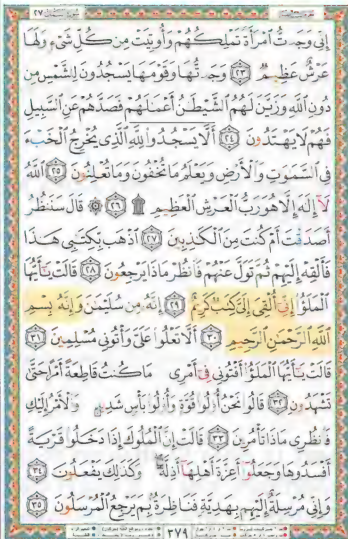 إِنِّى وَجَدتُّ ٱمْرَأَةً تَمْلِكُهُمْ وَأُوتِيَتْ مِن كُلِّ شَىْءٍ وَلَهَا
عَرْشٌ عَظِيمٌ ٢٣ وَجَدتُّهَا وَقَوْمَهَا يَسْجُدُونَ لِلشَّمْسِ مِن
دُونِ ٱللَّهِ وَزَيَّنَ لَهُمُ ٱلشَّيْطَٰنُ أَعْمَٰلَهُمْ فَصَدَّهُمْ عَنِ ٱلسَّبِيلِ
فَهُمْ لَا يَهْتَدُونَ ٢٤ أَلَّا يَسْجُدُوا۟ لِلَّهِ ٱلَّذِى يُخْرِجُ ٱلْخَبْءَ
فِى ٱلسَّمَٰوَٰتِ وَٱلْأَرْضِ وَيَعْلَمُ مَا تُخْفُونَ وَمَا تُعْلِنُونَ ٢٥ ٱللَّهُ
لَآ إِلَٰهَ إِلَّا هُوَ رَبُّ ٱلْعَرْشِ ٱلْعَظِيمِ ۩ ٢٦ ۞ قَالَ سَنَنظُرُ
أَصَدَقْتَ أَمْ كُنتَ مِنَ ٱلْكَٰذِبِينَ ٢٧ ٱذْهَب بِّكِتَٰبِى هَٰذَا
فَأَلْقِهْ إِلَيْهِمْ ثُمَّ تَوَلَّ عَنْهُمْ فَٱنظُرْ مَاذَا يَرْجِعُونَ ٢٨ قَالَتْ يَٰٓأَيُّهَا
ٱلْمَلَؤُا۟ إِنِّىٓ أُلْقِىَ إِلَىَّ كِتَٰبٌ كَرِيمٌ ٢٩ إِنَّهُۥ مِن سُلَيْمَٰنَ وَإِنَّهُۥ بِسْمِ
ٱللَّهِ ٱلرَّحْمَٰنِ ٱلرَّحِيمِ ٣٠ أَلَّا تَعْلُوا۟ عَلَىَّ وَأْتُونِى مُسْلِمِينَ ٣١
قَالَتْ يَٰٓأَيُّهَا ٱلْمَلَؤُا۟ أَفْتُونِى فِىٓ أَمْرِى مَا كُنتُ قَاطِعَةً أَمْرًا حَتَّىٰ
تَشْهَدُونِ ٣٢ قَالُوا۟ نَحْنُ أُو۟لُوا۟ قُوَّةٍ وَأُو۟لُوا۟ بَأْسٍ شَدِيدٍ وَٱلْأَمْرُ إِلَيْكِ
فَٱنظُرِى مَاذَا تَأْمُرِينَ ٣٣ قَالَتْ إِنَّ ٱلْمُلُوكَ إِذَا دَخَلُوا۟ قَرْيَةً
أَفْسَدُوهَا وَجَعَلُوٓا۟ أَعِزَّةَ أَهْلِهَآ أَذِلَّةً وَكَذَٰلِكَ يَفْعَلُونَ ٣٤
وَإِنِّى مُرْسِلَةٌ إِلَيْهِم بِهَدِيَّةٍ فَنَاظِرَةٌۢ بِمَ يَرْجِعُ ٱلْمُرْسَلُونَ ٣٥
٣٧٩